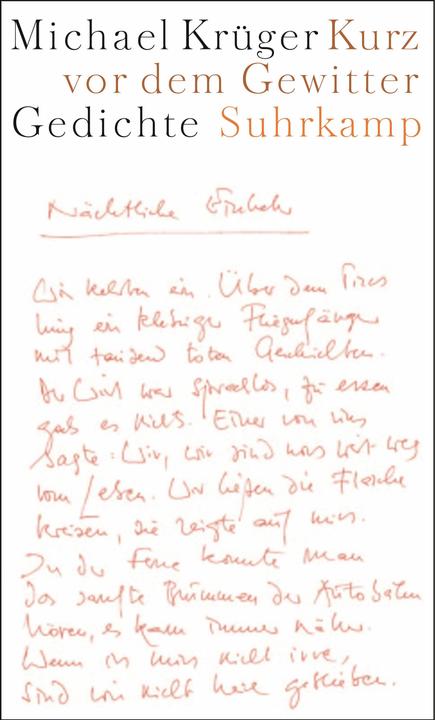 Michael Krüger Kurz
vor dem Gewitter
Gedichte Suhrkamp
Nächtliche Einkehr
Wir kehrten ein. Über dem Tresen
hing ein klebriger Fliegenfänger
mit tausend toten Geschichten.
Der Wirt war sprachlos, zu essen
gab es nichts. Einer von uns
sagte: Wir, wir sind noch weit weg
vom Leben. Wir ließen die Flasche
kreisen, sie zeigte auf mich.
In der Ferne konnte man
das sanfte Brummen der Autobahn
hören, es kam immer näher.
Wenn ich mich nicht irre,
sind wir nicht lange geblieben.